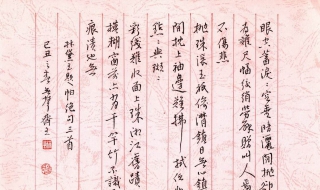 眼空蓄淚淚空垂暗灑閒拋卻
為誰尺幅鮫綃勞解贈叫人焉
不傷悲
拋珠滾玉只偷潸鎮日無心鎮
閒枕上袖邊難拂拭任他
點點與斑斑
彩綫難收面上珠湘江舊蹟
模糊窗前亦有千竿竹不識
痕漬也無
林黛玉題帕絕句三首
己丑之春